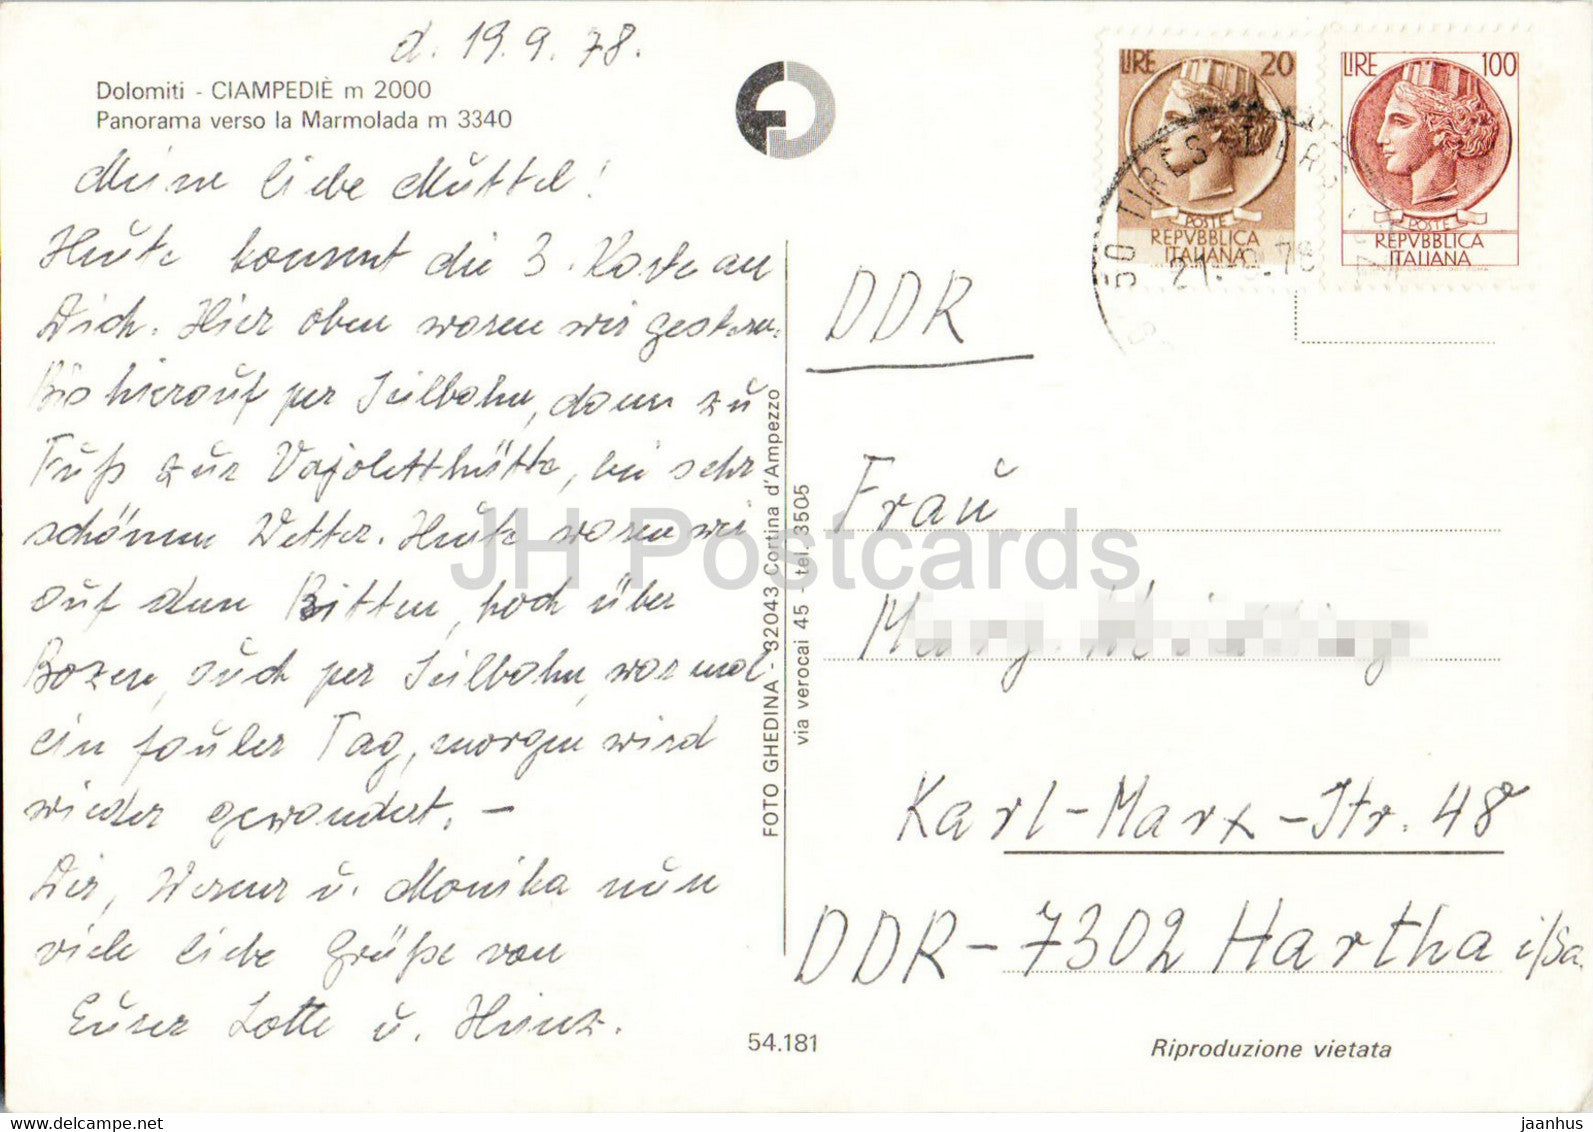 d. 19.9.78.
Dolomiti - CIAMPEDIÈ m 2000
Panorama verso la Marmolada m 3340
Meine liebe Muttel!
Heute kommt die 3. Karte an
Dich. Hier oben waren wir gestern.
Bis hierauf per Seilbahn, dann zu
Fuß zur Vajoletthütte, bei sehr
schönem Wetter. Heute waren wir
auf dem Ritten, hoch über
Bozen, auch per Seilbahn, war mal
ein fauler Tag, morgen wird
wieder gewandert. –
Dir, Werner u. Monika nun
viele liebe Grüße von
Eurer Lotte u. Heinz.
FOTO GHEDINA - 32043 Cortina d'Ampezzo
via verocai 45 - tel. 3505
54.181
LIRE 20
POSTE
REPVBBLICA
ITALIANA
LIRE 100
POSTE
REPVBBLICA
ITALIANA
50 TIRES - TIERS
21.-9.78
DDR
Frau
Karl-Marx-Str. 48
DDR-7302 Hartha i/Sa.
Riproduzione vietata
JH Postcards
jaanhus